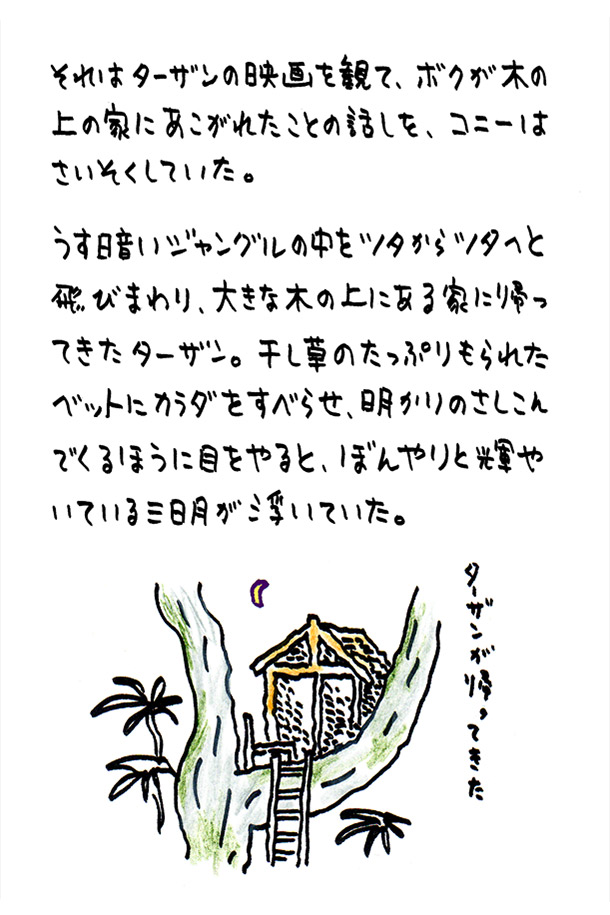 それはターザンの映画を観て、ボクが木の
上の家にあこがれたことの話しを、コニーは
さいそくしていた。
うす暗いジャングルの中をツタからツタへと
飛びまわり、大きな木の上にある家に帰っ
てきたターザン。干し草のたっぷりもられた
ベットにカラダをすべらせ、明かりのさしこん
でくるほうに目をやると、ぼんやりと輝や
いている三日月が浮いていた。
ターザンが帰ってきた